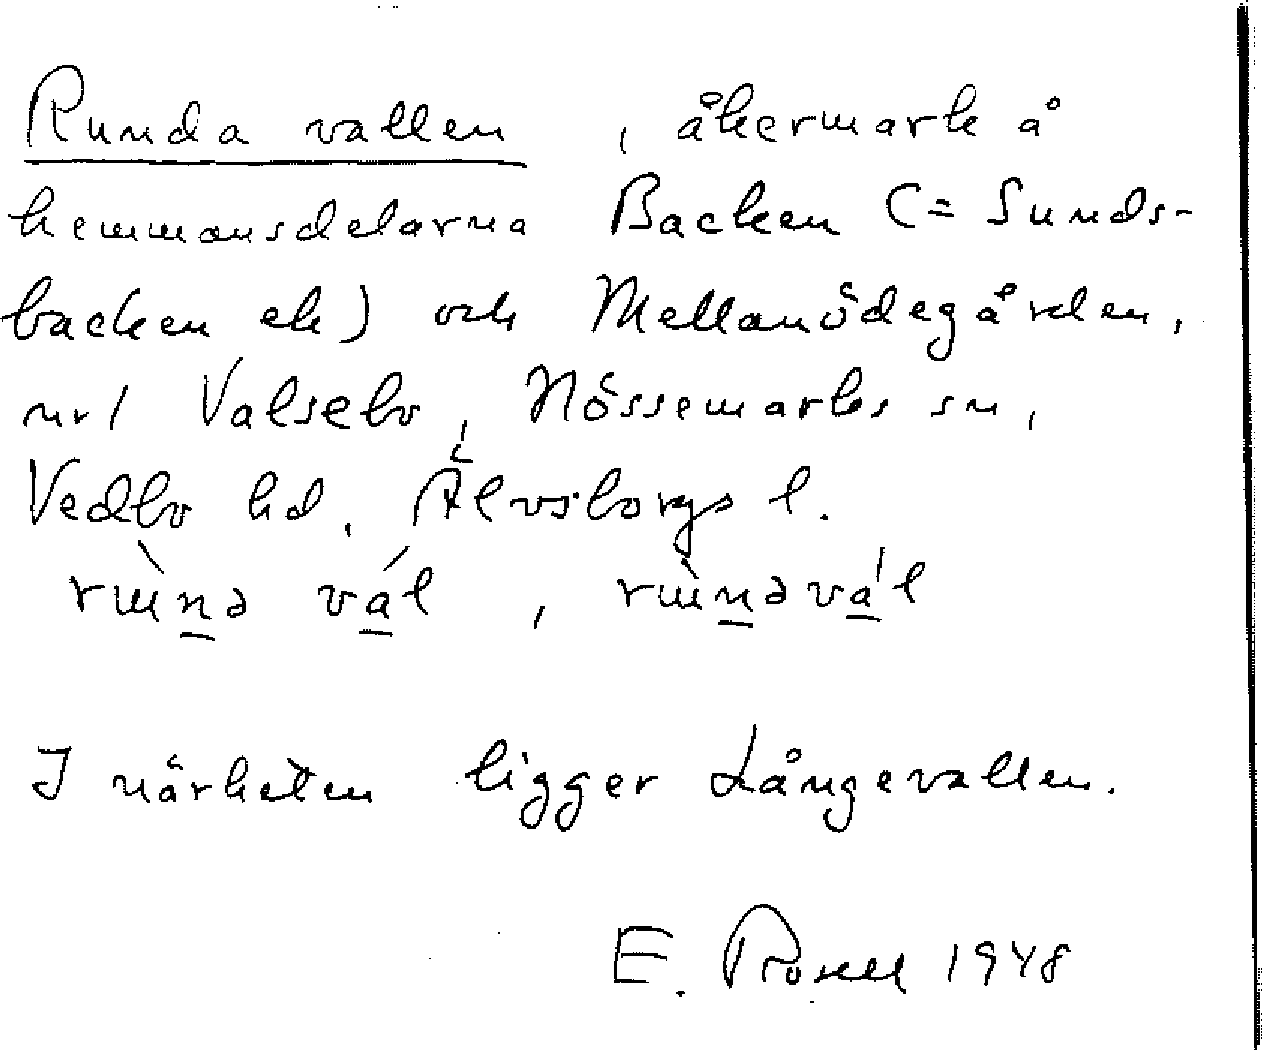 Runda vallen, åkermark å
hemmansdelarna Backen (= Sunds-
backen ek) och Mellanödegården,
nr 1 Valsebo, Nössemarks sn,
Vedbo hd, Älvsborgs l.
I närheten ligger Långevallen.
E. Rosell 1948